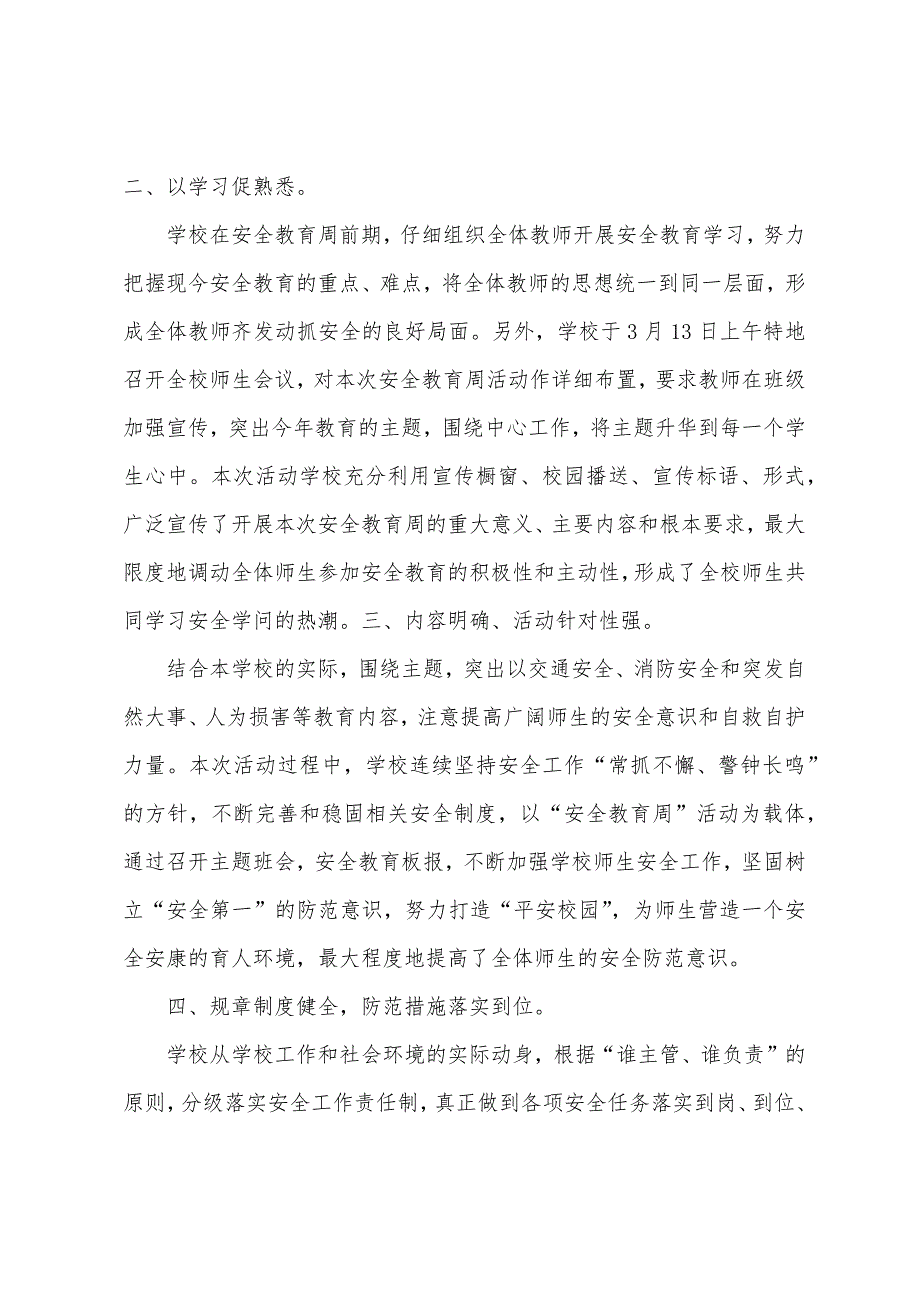 二、以学习促熟悉。
学校在安全教育周前期，仔细组织全体教师开展安全教育学习，努力
把握现今安全教育的重点、难点，将全体教师的思想统一到同一层面，形
成全体教师齐发动抓安全的良好局面。另外，学校于 3 月 13 日上午特地
召开全校师生会议，对本次安全教育周活动作详细布置，要求教师在班级
加强宣传，突出今年教育的主题，围绕中心工作，将主题升华到每一个学
生心中。本次活动学校充分利用宣传橱窗、校园播送、宣传标语、形式，
广泛宣传了开展本次安全教育周的重大意义、主要内容和根本要求，最大
限度地调动全体师生参加安全教育的积极性和主动性，形成了全校师生共
同学习安全学问的热潮。三、内容明确、活动针对性强。
结合本学校的实际，围绕主题，突出以交通安全、消防安全和突发自
然大事、人为损害等教育内容，注意提高广阔师生的安全意识和自救自护
力量。本次活动过程中，学校连续坚持安全工作“常抓不懈、警钟长鸣”
的方针，不断完善和稳固相关安全制度，以“安全教育周”活动为载体，
通过召开主题班会，安全教育板报，不断加强学校师生安全工作，坚固树
立“安全第一”的防范意识，努力打造“平安校园”，为师生营造一个安
全安康的育人环境，最大程度地提高了全体师生的安全防范意识。
四、规章制度健全，防范措施落实到位。
学校从学校工作和社会环境的实际动身，根据“谁主管、谁负责”的
原则，分级落实安全工作责任制，真正做到各项安全任务落实到岗、到位、